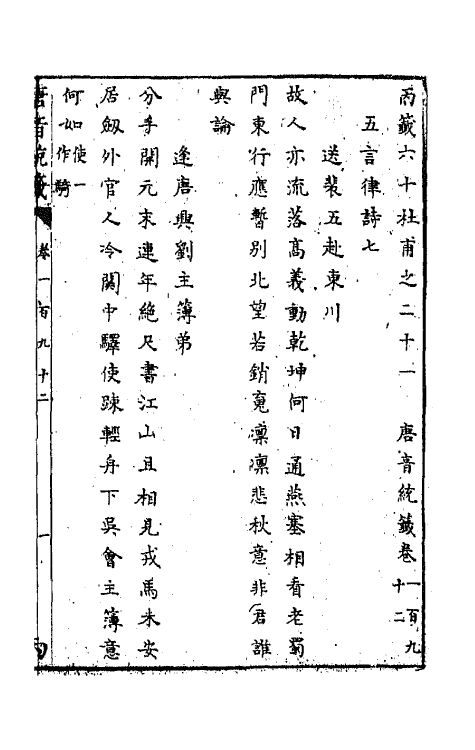 丙籖六十杜甫之二十一　唐音統籖卷一百九十二
五言律詩七
送裴五赴東川
故人亦流落髙義動乾坤何日通燕塞相看老蜀
門東行應暫別北望若銷䰟凛凛悲秋意非君誰
與論
逢唐興劉主簿弟
分手開元末連年絶尺書江山且相見戎馬未安
居劔外官人冷關中驛使踈輕舟下吳會主簿意
何如使一作騎
唐音統籖
卷一百九十二
一